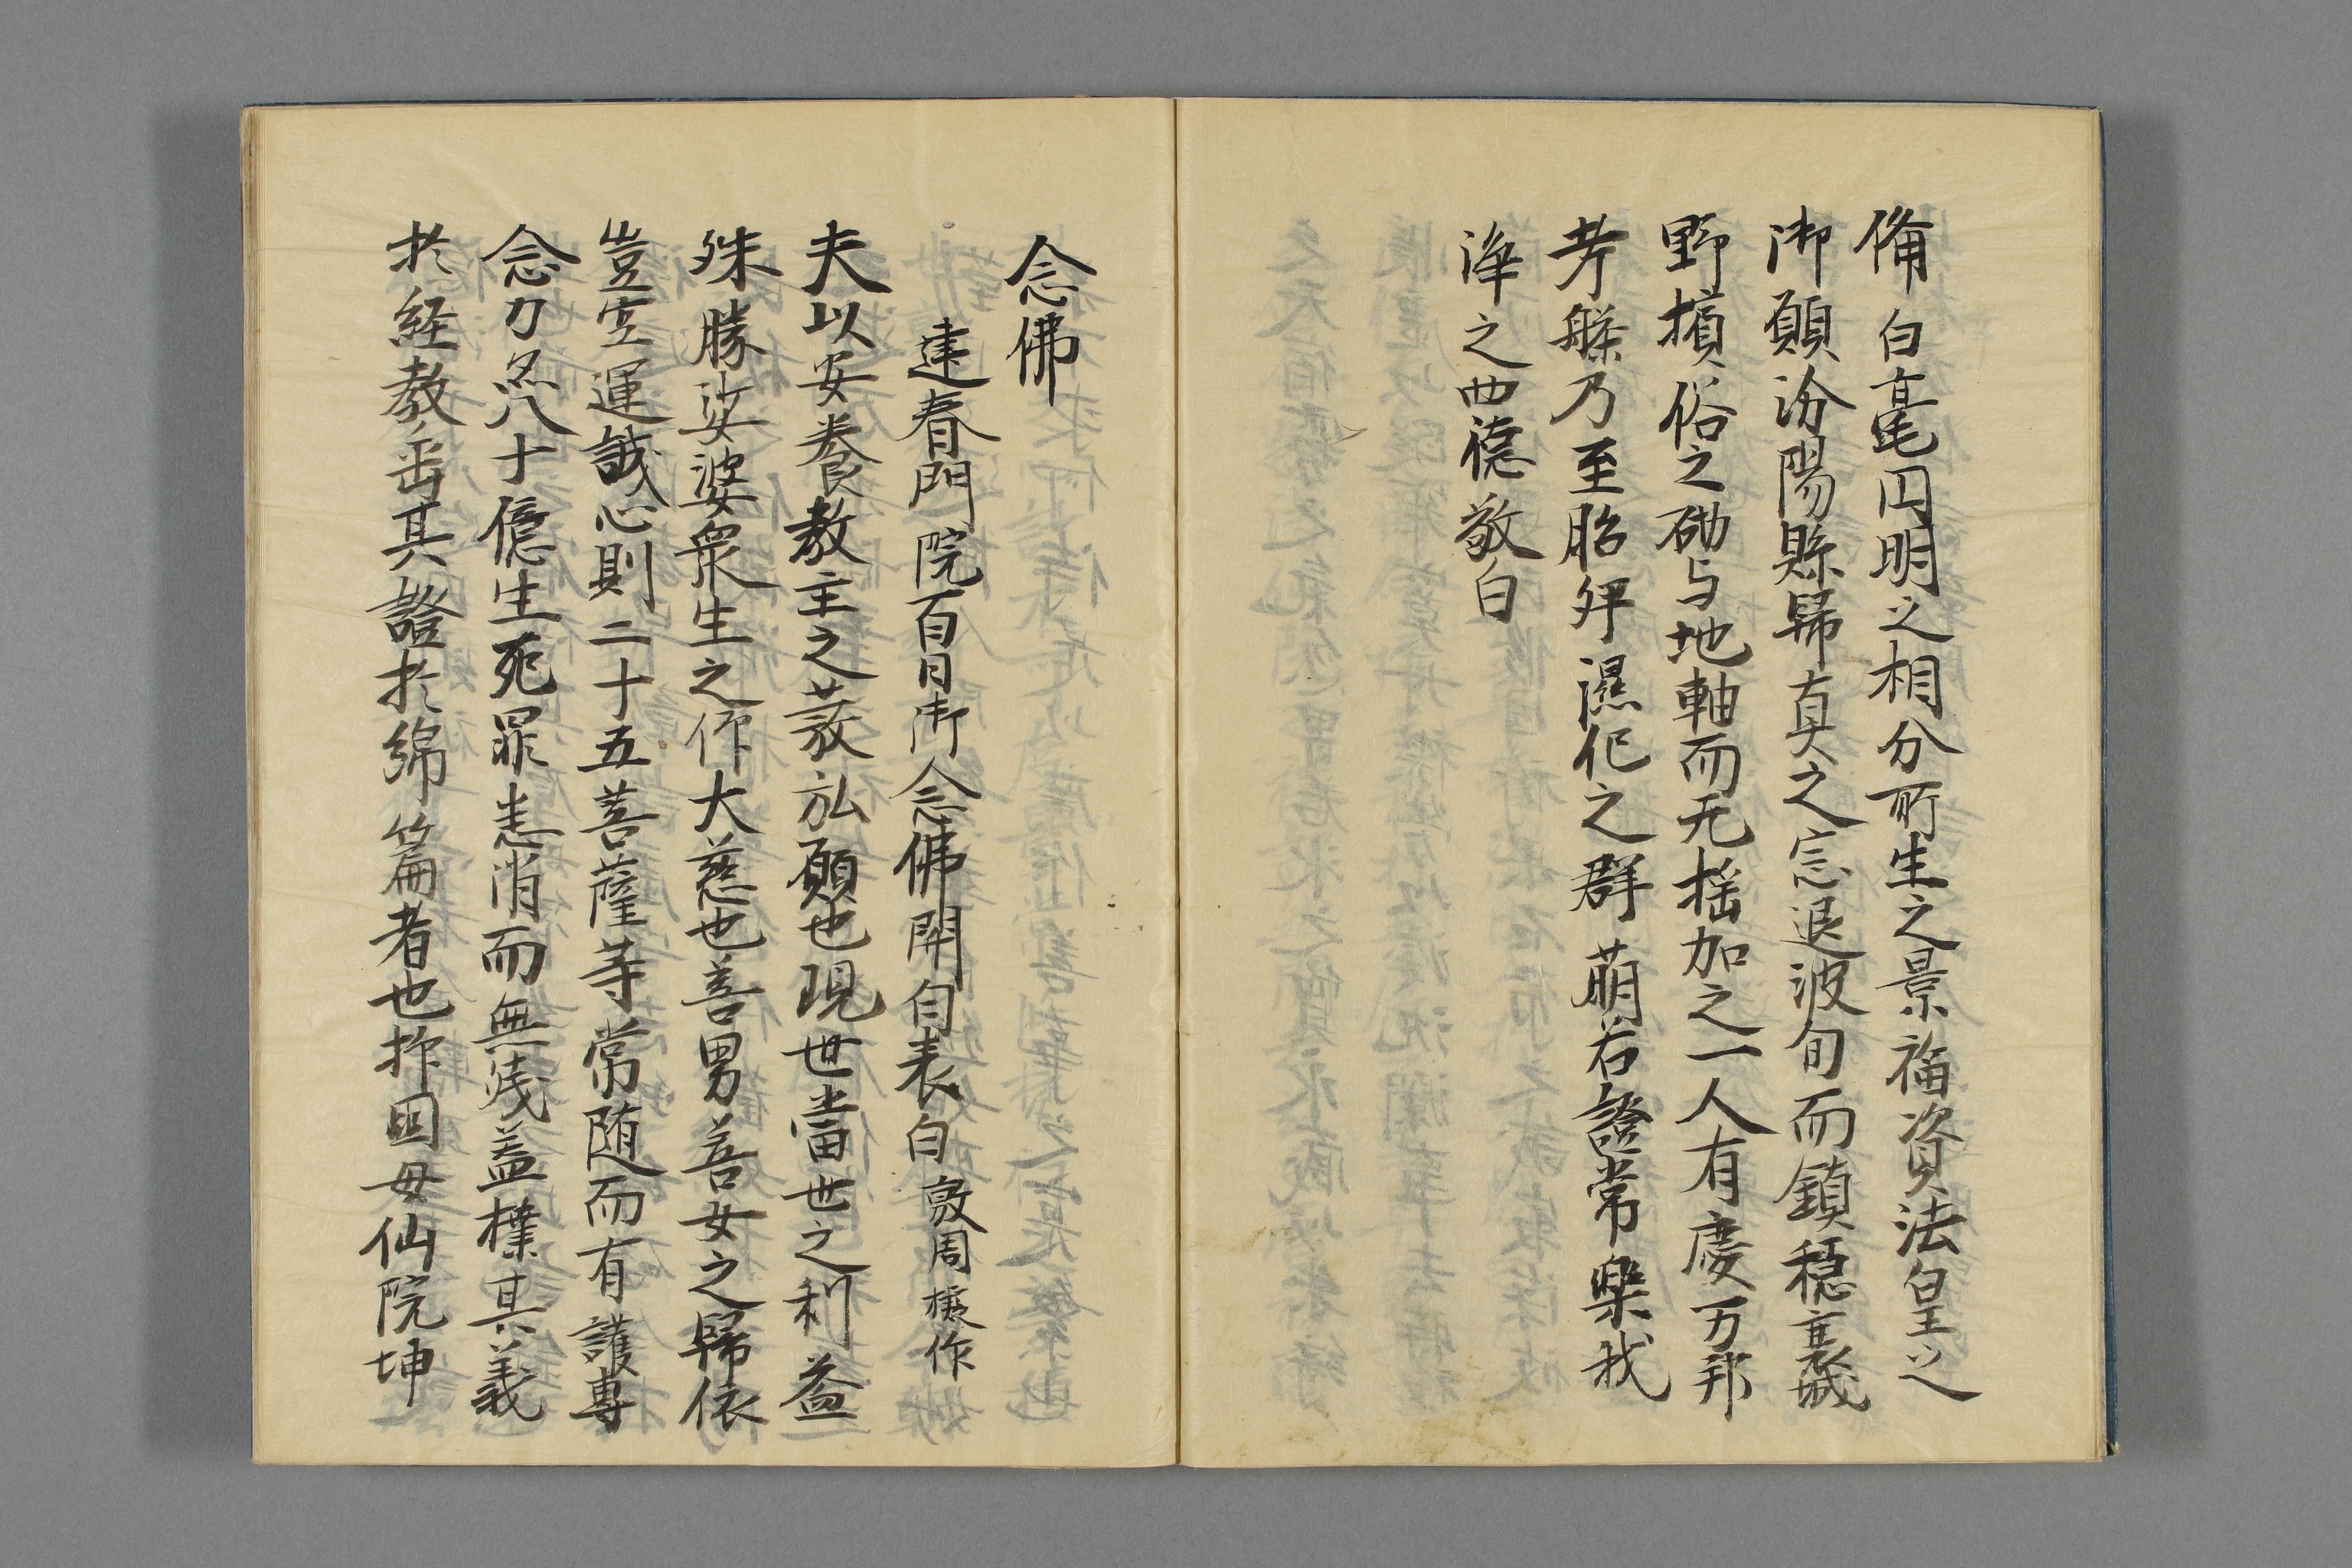 備白毫円明之相分所生之景福資法皇之
御願汾陽縣歸真之宗退波旬而鎮穏襄城
野損俗之砌与地軸而无揺加之一人有慶万邦
孝縣乃至胎卵濕化之群萌若證常樂我
淨之四德敬白
念佛
建春門院百日御念佛開白表白 敦周様作
夫以安養教主之發弘願也現世當世之利益
殊勝娑婆衆生之仰大慈也善男善女之歸依
豈空運誠心則二十五菩薩等常随而有護專
念力必八十億生死罪悉消而無残蓋撲其義
於経教岳其證於綿篇者也抑国母仙院坤